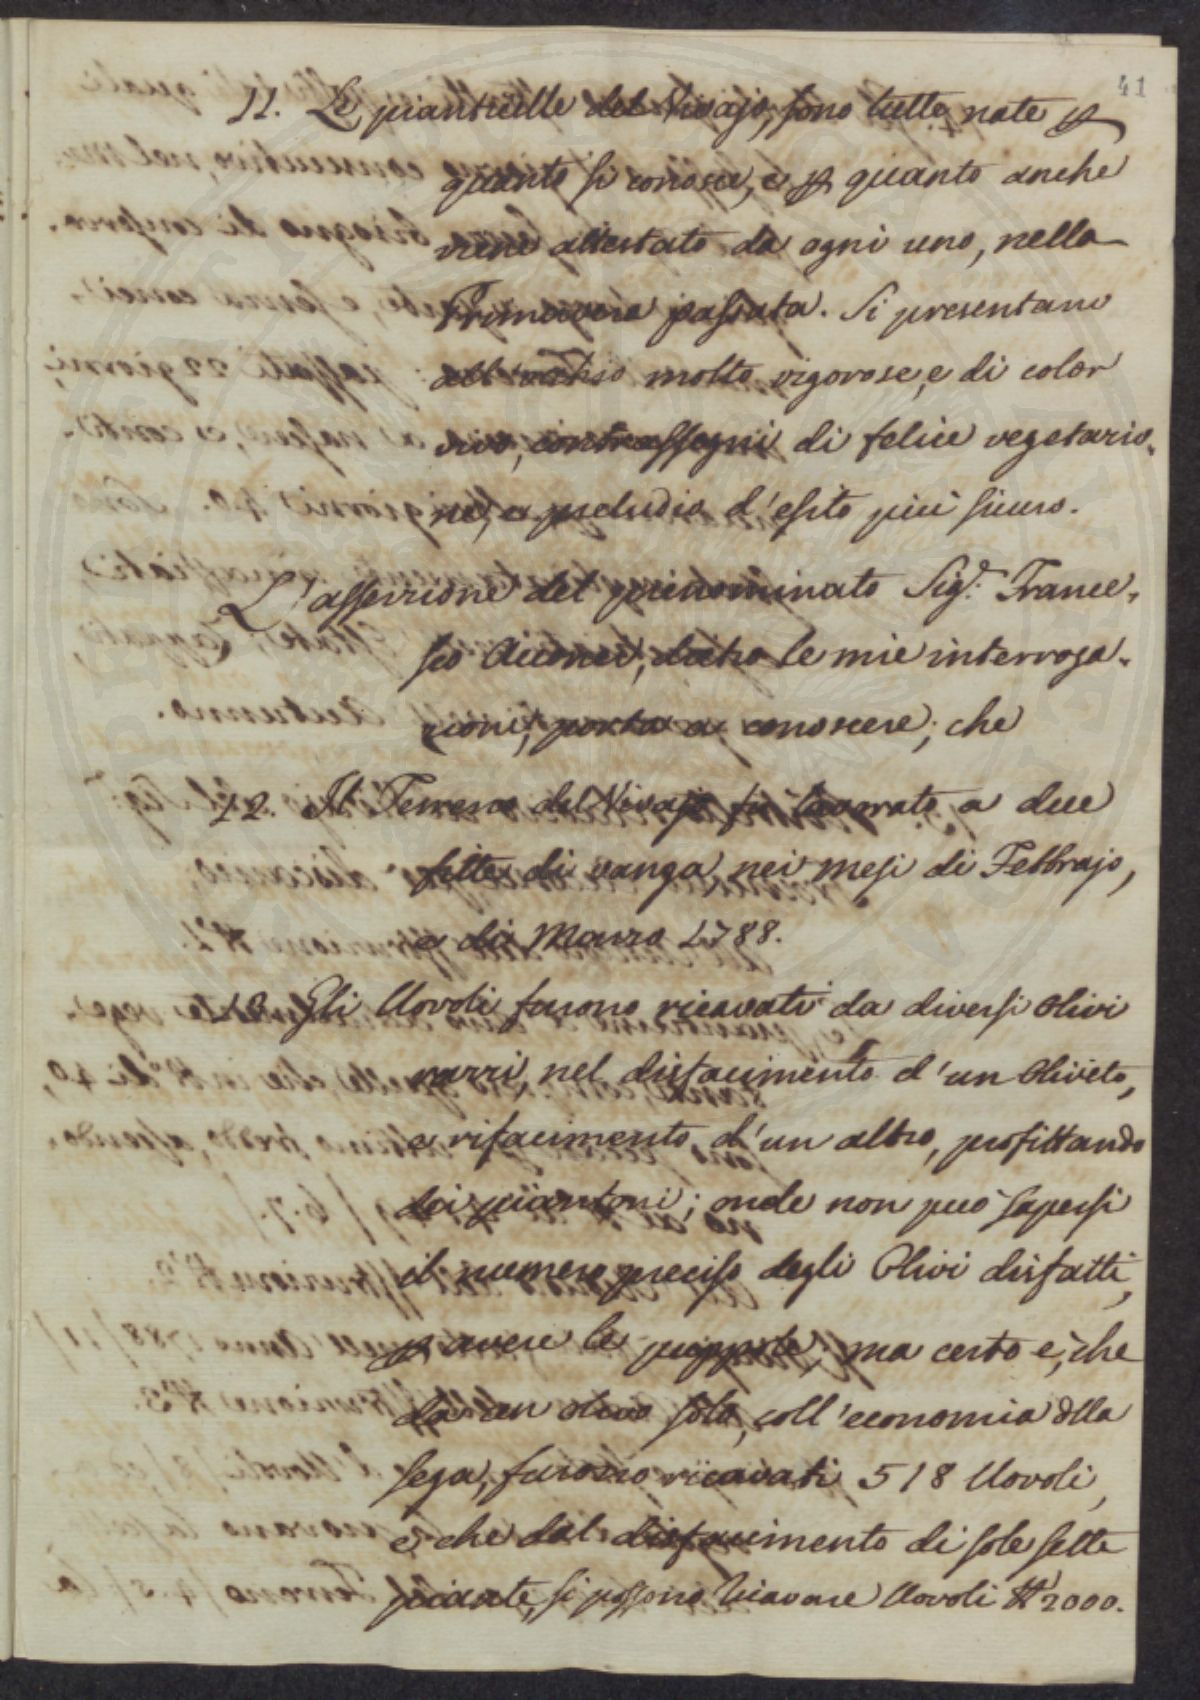 41
11. Le pianticelle del Vivajo, sono tutte nate ꝑ
quanto si conosce, e ꝑ quanto anche
viene attestato da ogni uno, nella
Primavera passata. Si presentano
all'occhio molto vigorose, e di color
vivo, contrassegni di felice vegetazio-
ne, e preludio d'esito più sicuro.
L'asserzione del prenominato Sig.r France-
sco, dietro le mie interroga-
zioni, porta a conoscere, che
12. Il Terreno del Vivajo fu lavorato a due
fitte di vanga, nei mesi di Febbrajo,
e di Marzo 1788.
13. Gli Uovoli furono ricavati da diversi Olivi
nel disfacimento d'un Oliveto,
e rifacimento d'un altro, profittando
dei piantoni; onde non può sapersi
il numero preciso degli Olivi disfatti,
ꝑ avere le puppole; ma certo è, che
da un olivo solo, coll'economia dlla
sega, furono ricavati 518 Uovoli,
e che dal disfacimento di sole sette
piante, si possono ricavare Uovoli N° 2000.